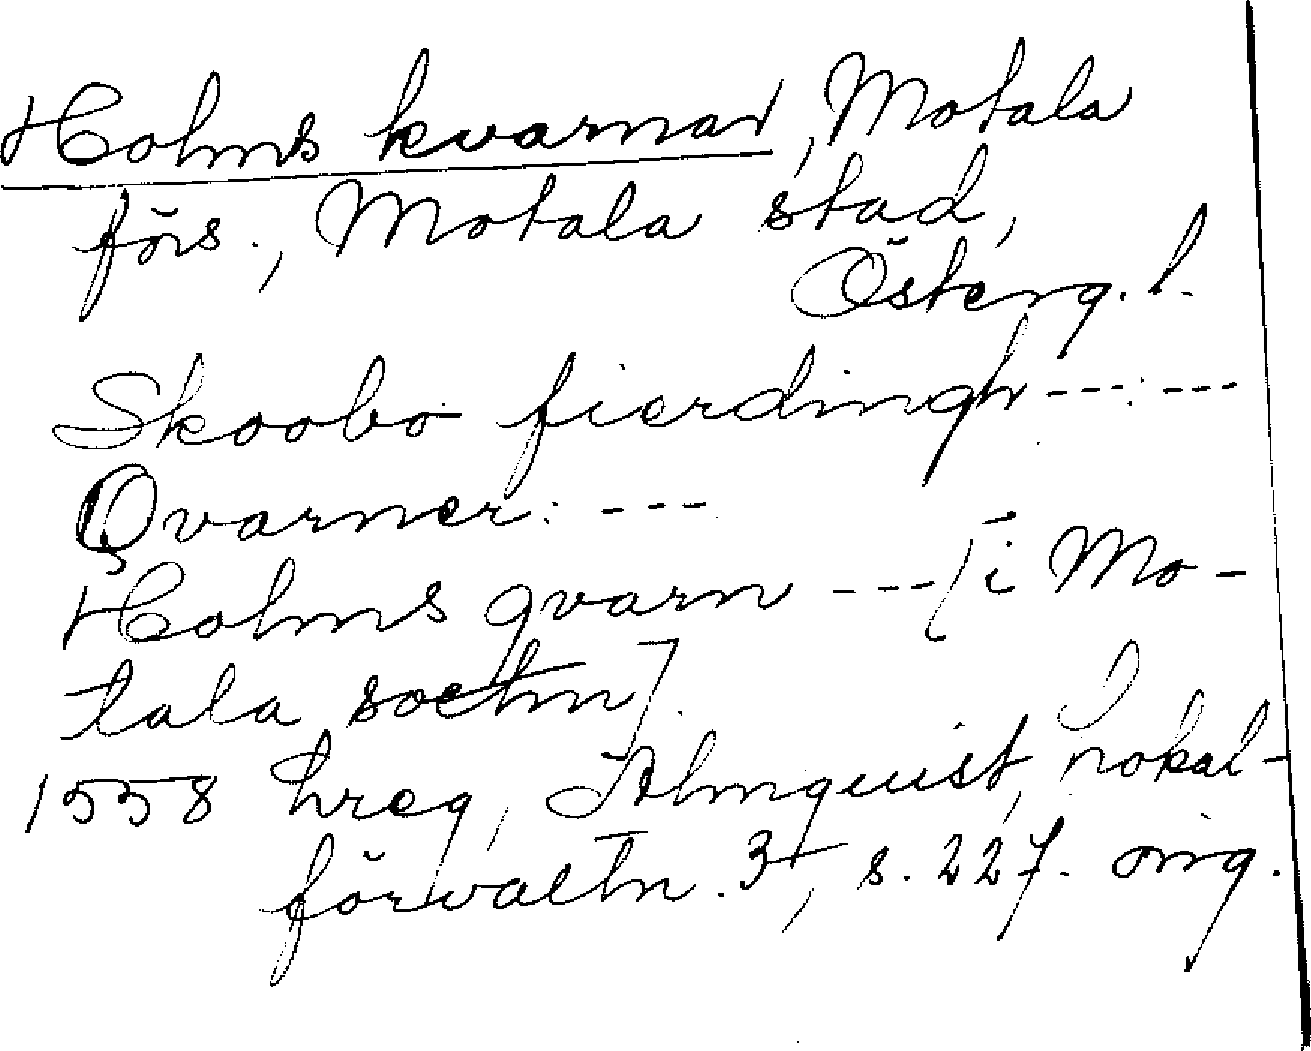 Holms kvarnar, Motala
förs., Motala stad,
Österg. l.
Skoobo fierdingh ---:---
Qvarner: ---
Holms qvarn --- [i Mo-
tala sochn].
1558 hreg, Almquist, Lokal-
förvaltn. 3, s. 227. orig.